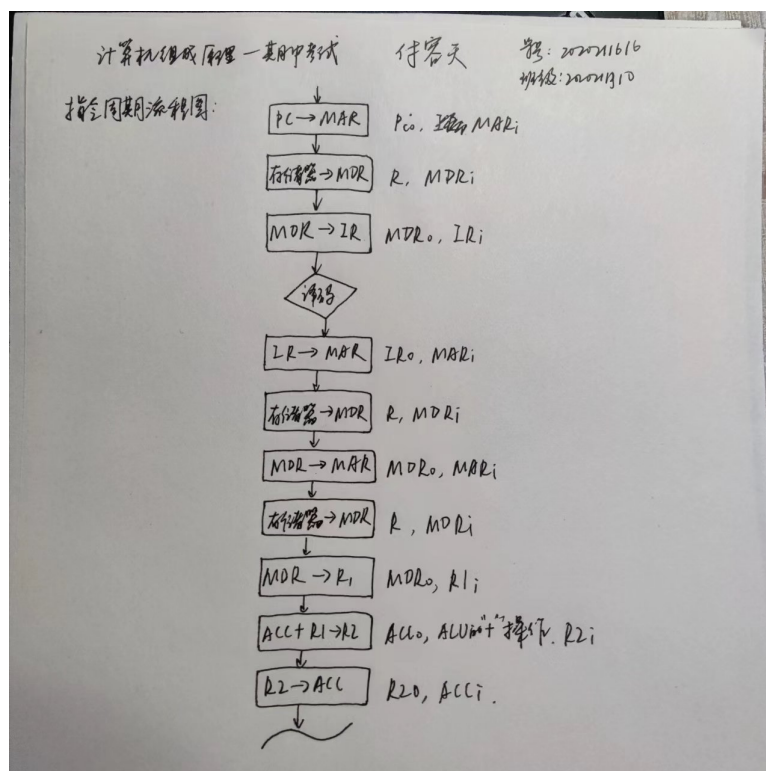 计算机组成原理—期中考试 付容天 学号: 2020211616
班级: 2020211310
指令周期流程图:
PC→MAR PCo, MARi
存储器→MDR R, MDRi
MDR→IR MDRo, IRi
译码
IR→MAR IRo, MARi
存储器→MDR R, MDRi
MDR→MAR MDRo, MARi
存储器→MDR R, MDRi
MDR→R1 MDRo, R1i
ACC+R1→R2 ACCo, ALU的"+"操作, R2i
R2→ACC R2o, ACCi.